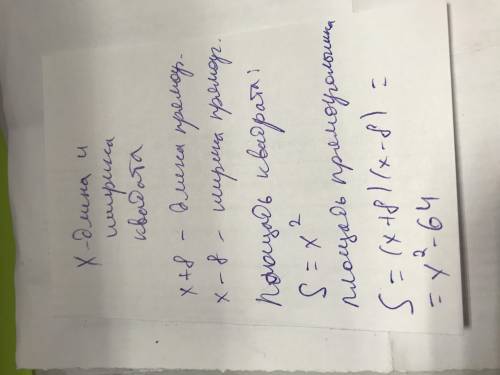 X - длина и
ширина
квадрата
x+8 - длина прямоуг.
x-8 - ширина прямоуг.
Площадь квадрата:
S = x²
площадь прямоугольника
S = (x+8)(x-8) =
= x²-64